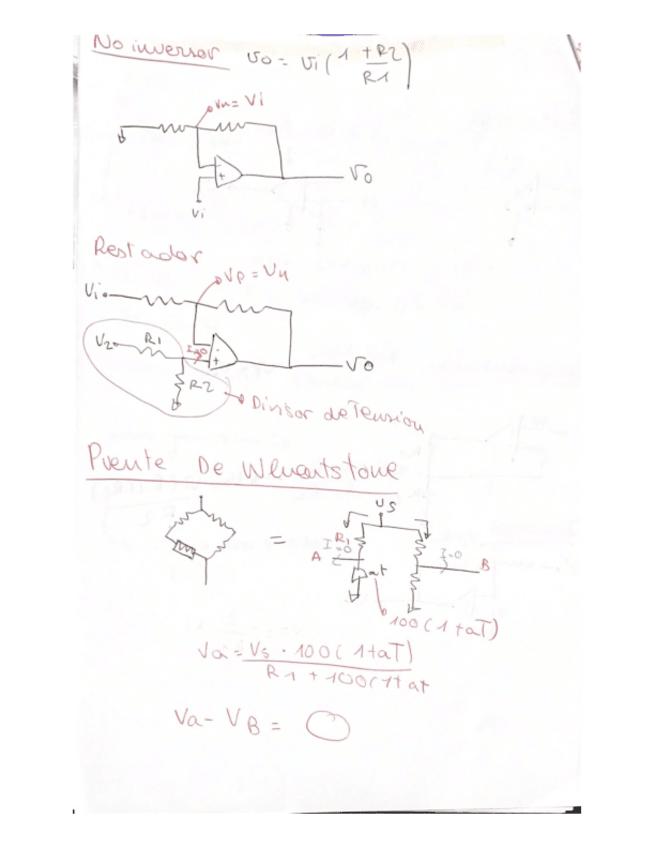 No inversor  vo = vi ( 1 + R2 / R1 )
Vn = Vi
Vo
Vi
Restador
Vp = Vn
Vi
V2 R1 I=0
Vo
R2
Divisor de Tension
Puente De Wheatstone
Vs
R1
I=0 I=0
A = B
at
100 ( 1 + aT )
Va = Vs · 100 ( 1 + aT )
R1 + 100 ( 1 + at
Va - VB =